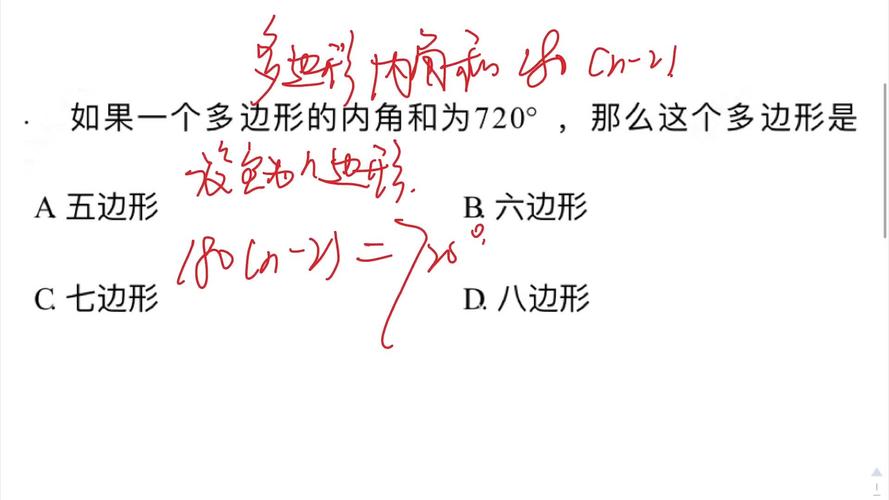 多边形内角和180(n-2)
如果一个多边形的内角和为720°，那么这个多边形是
设它为n边形.
A 五边形 B. 六边形
180(n-2)=720°.
C. 七边形 D. 八边形